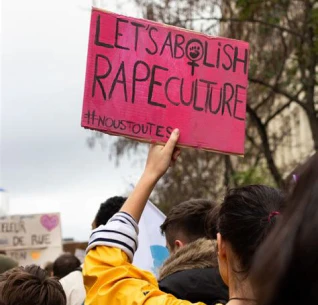 LET'S ABOLISH
RAPE CULTURE
#NOUSTOUTES
DE RUE